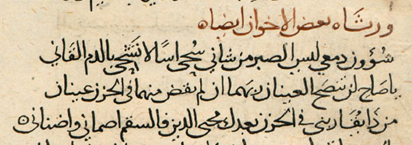 ورثاه بعض الاخوان ايضا ه
شؤون دمعي ليس الصبر من شأني سحي اسا لا تشحي بالدم القاني
ياصاح لن تنضح العينان ديمهما ان لم يفض منهما في الحزن عينان
من ذا يقاربني في الحزن بعدك محيي الدين فالسقم اصماني واضناني ه